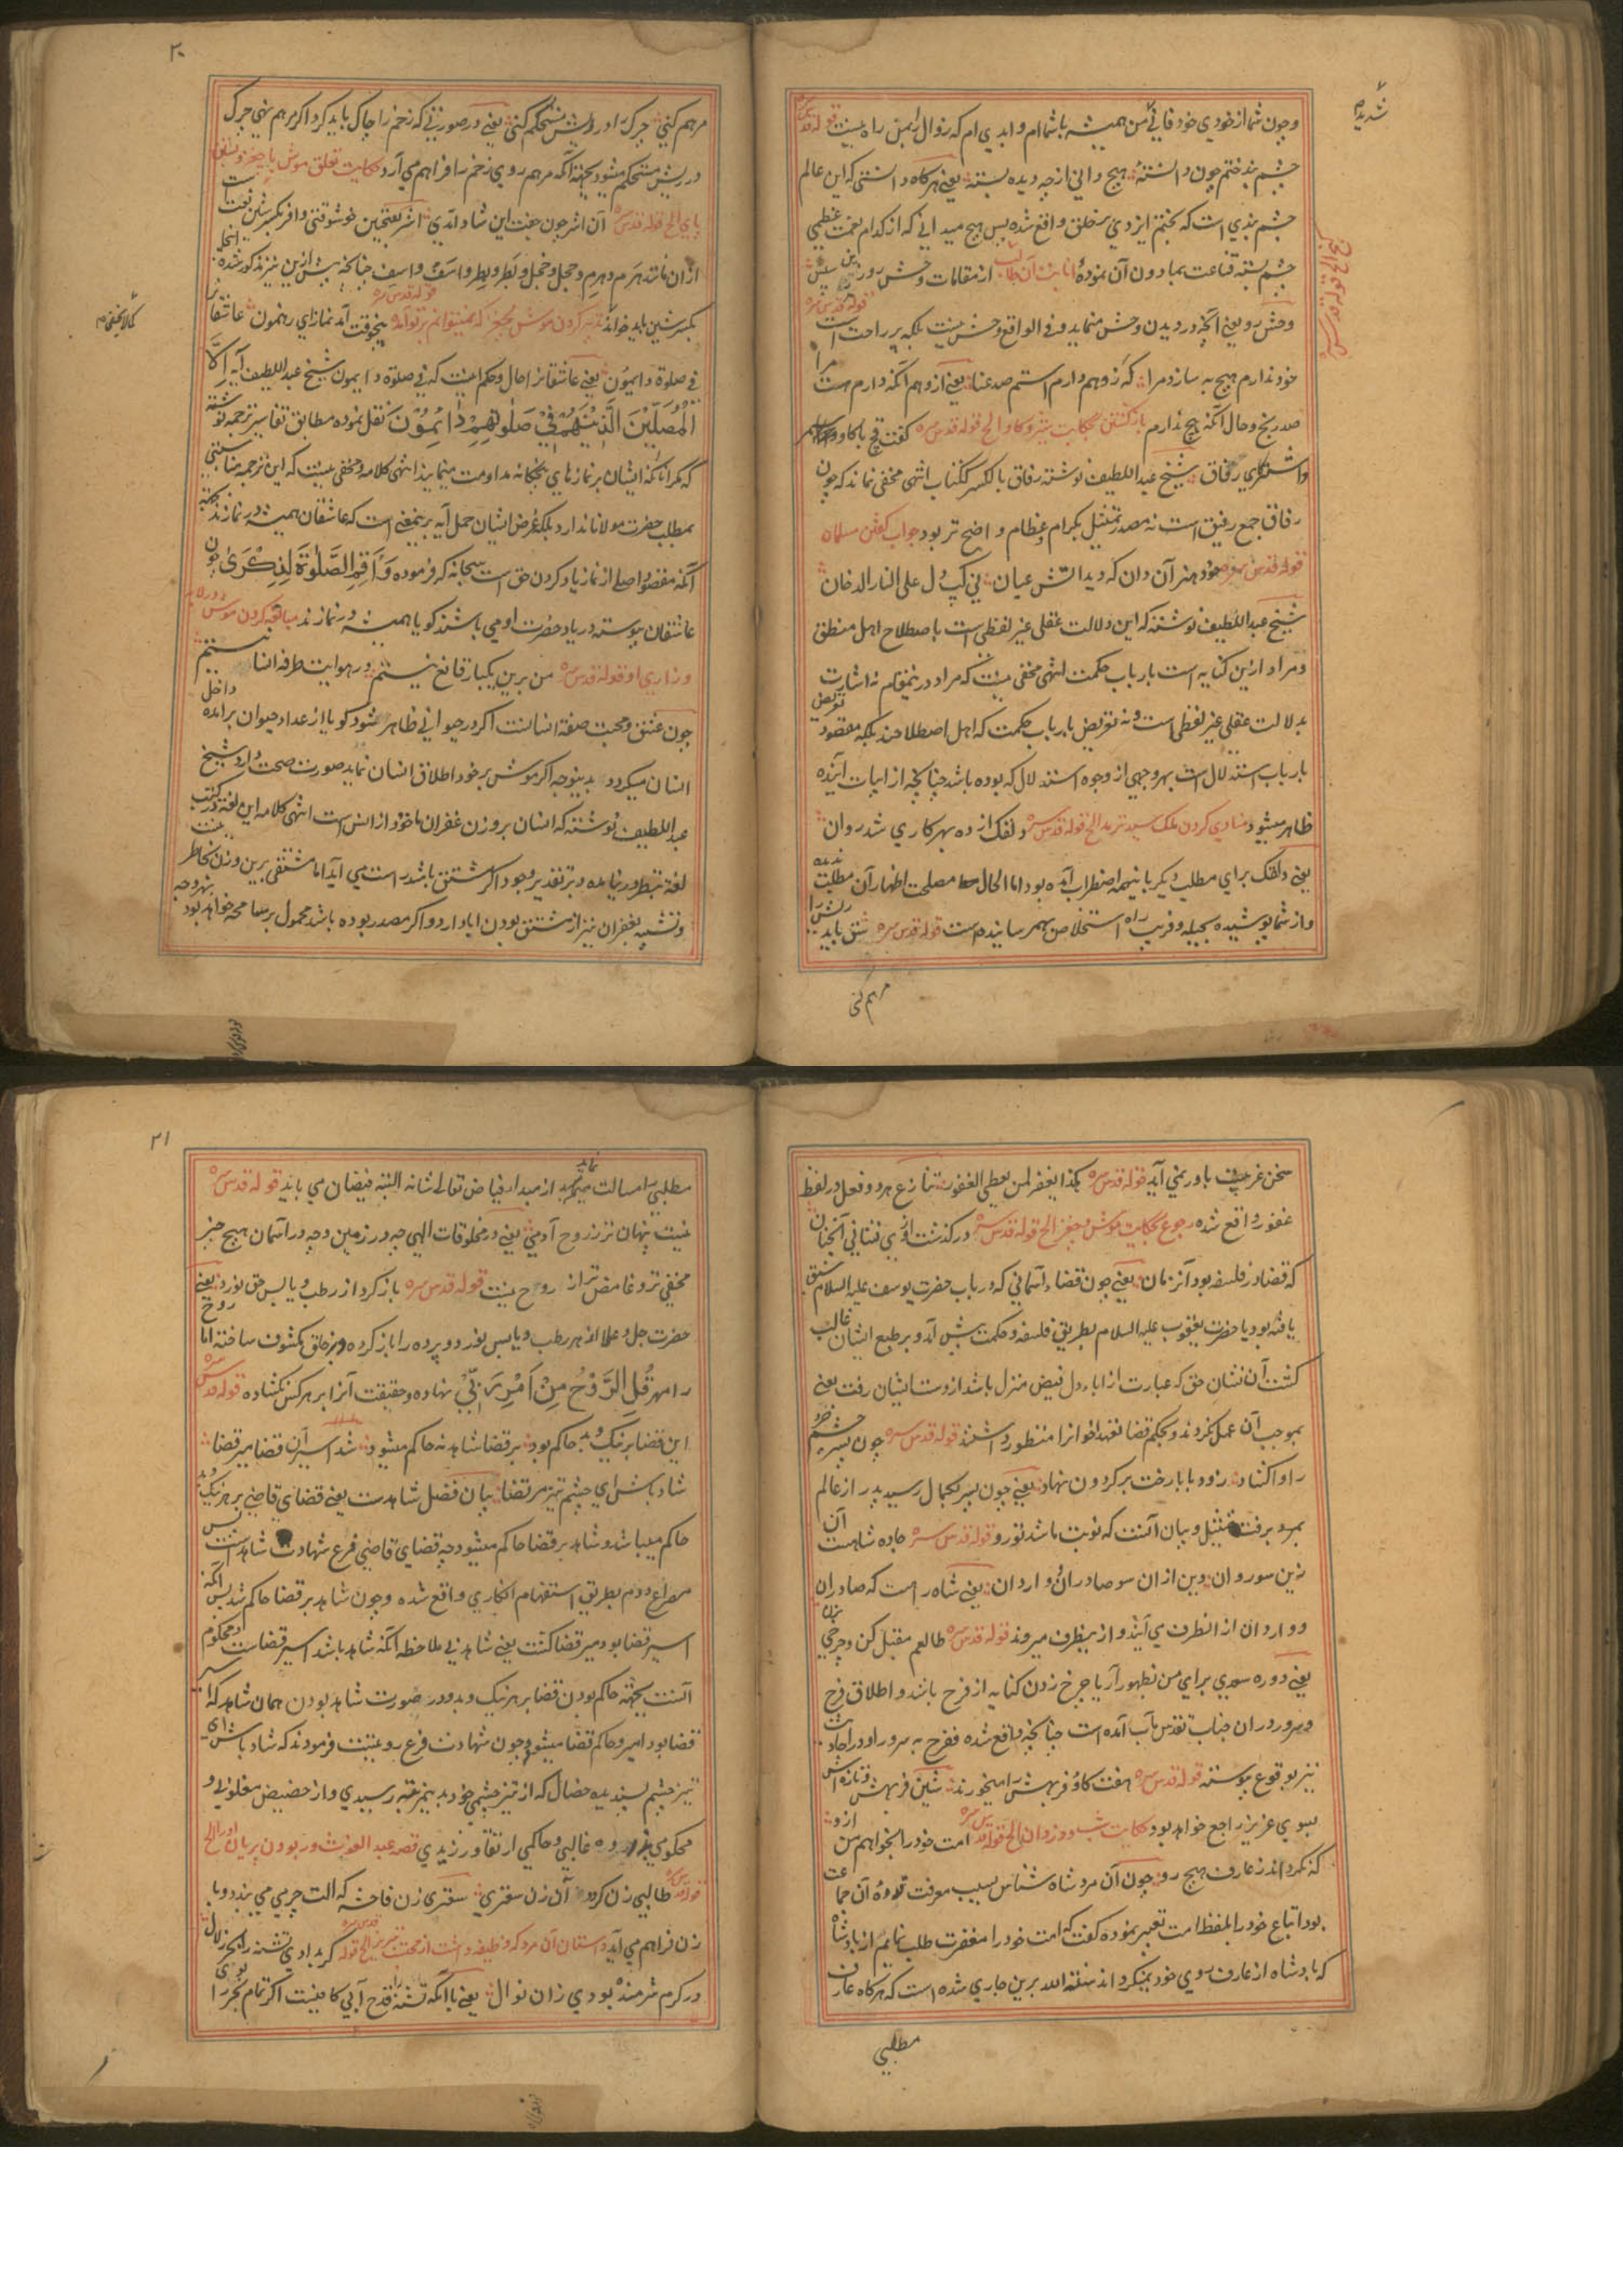 وچون شما از خودی خود فانی من همیشه باشما ام وابدی ام که زوال را بمن راه نیست قوله قدس سره
چشم بند ختم چون دانستهٔ هیچ دانی از چه دیده بستهٔ یعنی هرکاه دانستی که این عالم
چشم بندی است که بختم ایزدی بر خلق واقع شده پس هیچ میدانی که از کدام نعمت عظمی
چشم بسته قناعت بمادون آن نمودهٔ انابت آن طالب از مقامات وحش رو زین سپس
وحش رو یعنی آنچه در دیدن وحش مینماید و فی الواقع وحش نیست بلکه پر راحت است قوله قدس سره
خود ندارم هیچ به سازد مرا که ز وهم دارم است صد عنا یعنی از وهم آنکه دارم مرا هست
صد رنج وحال آنکه هیچ ندارم باز گشتن بحکایت شتر و کاو الخ قوله قدس سره گفت قچ با کاو و
واشتر کای رفاق شیخ عبد اللطیف نوشته رفاق بالکسر ککتاب انتهی مخفی نماند که چون
رفاق جمع رفیق است نه مصدر تمثیل بکرام وعظام واضح تر بود جواب گفتن مسلمان
قوله قدس سره خود هنر آن دان که دید آتش عیان نی کپ دل علی النار الدخان
شیخ عبد اللطیف نوشته که این دلالت عقلی غیر لفظی است باصطلاح اهل منطق
ومراد ازین کنایه است بارباب حکمت انتهی مخفی نیست که مراد درینمقام نه اشارت
بدلالت عقلی غیر لفظی است ونه تعریض بارباب حکمت که اهل اصطلاحند بلکه مقصود تعریض
بارباب استدلال است بهر وجهی از وجوه استدلال که بوده باشد چنانچه از ابیات آینده
ظاهر میشود منادی کردن ملک سید ترمد الخ قوله قدس سره دلقک از ده بهر کاری شد روان
یعنی دلقک برای مطلب دیگر باینهمه اضطراب آمده بود اما الحال مصلحت اظهار آن مطلب ندیده
واز شما پوشیده بحیله وفریب راه استخلاص بهم رسانیده است قوله قدس سره شق باید ریش را
مرهم کنی
۲۰
مرهم کنی چرک را در ریش مستحکم کنی یعنی در صورتی که زخم را چاک باید کرد اگر مرهم نهی چرک
در ریش مستحکم میشود بجهت آنکه مرهم روی زخم را فراهم می آرد حکایت تعلق موش با چغز و بستن
پای الخ قوله قدس سره آن اشر چون جفت این شاد آمدی اشر بفتحین خوشوقتی وافر بکسر شین نعت است
ازان مانند هرم وهرم وخجل وخجل وبطر وبطر واسف واسف چنانچه پیش ازین نیز مذکور شده اینجا
بکسر شین باید خواند تدبیر کردن موش بچغز که نمیتوانم بر تو آمد قوله قدس سره پنجوقت آمد نماز ای رهنمون عاشقانرا
فی صلوة دایمون یعنی عاشقانرا حال وحکم اینست که فی صلوة دایمون شیخ عبد اللطیف آیه الا
المصلین الذین هم فی صلوتهم دایمون نقل نموده مطابق تفاسیر ترجمه نوشته
که مگر آنانکه ایشان بر نمازهای پنجگانه مداومت مینمایند انتهی کلامه ومخفی نیست که این ترجمه مناسبتی
بمطلب حضرت مولانا ندارد بلکه غرض ایشان حمل آیه برینمعنی است که عاشقان همیشه در نمازند بجهت
آنکه مقصود اصلی از نماز یاد کردن حق است سبحانه که فرموده واقم الصلوة لذکری چون
عاشقان پیوسته در یاد حضرت او می باشند کویا همیشه در نمازند مبالغه کردن موش در لابه
وزاری او قوله قدس سره من برین یکبار قانع نیستم در هوایت طرفه انسانیستم
چون عشق ومحبت صفة انسانست اکر در حیوانی ظاهر شود کویا از عداد حیوان برآمده داخل
انسان میکردد بدینوجه اکر موش بر خود اطلاق انسان نماید صورت صحت دارد شیخ
عبد اللطیف نوشته که انسان بروزن غفران ماخوذ از انس است انتهی کلامه این لغة در کتب
لغة بنظر در نیامده وبر تقدیر وجود اکر مشتق باشد راست می آید اما مشتقی برین وزن بخاطر نیست
وتشبیه بغفران نیز از مشتق بودن ابا دارد واکر مصدر بوده باشد محمول بر معا محه خواهد بود بهر وجه
سخن غرض باور نمی آید قوله قدس سره بکذا یغفر لمن یعطی الغفور تنازع هر دو فعل در لفظ
غفور واقع شده رجوع بحکایت موش و چغز الخ قوله قدس سره در گذشت از وی نشانی آنچنان
که قضا در فلسفه بود آنزمان یعنی چون قضاء آسمانی که در باب حضرت یوسف علیه السلام سبق
یافته بود یا حضرت یعقوب علیه السلام بطریق فلسفه وحکمت پیش آمد وبر طبع ایشان غالب
کشت آن نشان حق که عبارت از اباء دل فیض منزل باشد از دست ایشان رفت یعنی
بموجب آن عمل نکردند وبحکم قضا تعهد اخوانرا منظور داشتند قوله قدس سره چون پسر چشم خرد
را وا کشاد زود بابا رخت بر کردون نهاد یعنی چون پسر بکمال رسید پدر از عالم
بمرد برفت تمثیل وبیان آنست که نوبت ما شد تو رو قوله قدس سره جاده شاهست آن
زین سو روان وین ازان سو صادران و واردان یعنی شاه راه است که صادران
وواردان ازانطرف می آیند واز ینطرف میروند قوله قدس سره طالعم مقبل کن وچرخی بزن
یعنی دوره سودی برای من بظهور آر یا چرخ زدن کنایه از فرح باشد واطلاق فرح
وسرور دران جناب تقدس مآب آمده است چنانچه واقع شده ففرح به سرور او در احادیث
نیز بوقوع پیوسته قوله قدس سره هفت کاو فربهش را میخورند شین فربهش وتازه اش
بسوی عزیز راجع خواهد بود حکایت شب دزدان الخ قوله قدس سره امت خود را بخواهم من ازو
که نکرداند ز عارف هیچ رو چون آن مرد شاه شناس بسبب معرفت قدوهٔ آن جماعت
بود اتباع خود را بلفظ امت تعبیر نموده گفت که امت خود را مغفرت طلب نمایم از پادشاه
که پادشاه از عارف روی خود نمیکرداند سنة الله برین جاری شده است که هرکاه عارف
مطلبی
۲۱
مطلبی را مسالت مینماید از مبداء فیاض تعالی شانه البته فیضان می یابد قوله قدس سره
نیست پنهان تر ز روح آدمی یعنی در مخلوقات الهی چه در زمین وچه در آسمان هیچ چیز
مخفی تر وغامض تر از روح نیست قوله قدس سره باز کرد از رطب ویابس حق نورد یعنی
حضرت جل وعلا از هر رطب ویابس نورد وپرده را باز کرده وبر خلق مکشوف ساخته اما روح
را مهر قل الروح من امر ربی نهاده وحقیقت آنرا بر هرکس نکشاده قوله قدس سره
این قضا بر نیک و بد حاکم بود بر قضا شاهد نه حاکم میشود شد اسیر آن قضا میر قضا
شاد باش ای چشم تیز مرتضا بیان فضل شاهدست یعنی قضای قاضی بر هر نیک وبد
حاکم میباشد وشاهد بر قضا حاکم میشود چه قضای قاضی فرع شهادت شاهد است پس
مصراع دوم بطریق استفهام انکاری واقع شده وچون شاهد بر قضا حاکم شد پس آنکه
اسیر قضا بود میر قضا کشت یعنی شاهد بی ملاحظه آنکه شاهد باشد اسیر قضاست ومحکوم
آنست بجهة حاکم بودن قضا بر هر نیک وبد ودر صورت شاهد بودن همان شاهد که اسیر
قضا بود امیر وحاکم قضا میشود وچون شهادت فرع رویتست فرمودند که شاد باش ای
تیز چشم پسندیده خصال که از تیز چشمی خود بدینمرتبه رسیدی واز حضیض مغلوبی و
محکومی بذروه غالبی وحاکمی ارتقا ورزیدی قصه عبد الغوث وربودن پریان او را الخ
قوله قدس سره طالبی زن کردد آن زن سعتری سعتری زن فاحشه که الت چرمی می بندد وبا
زن فراهم می آید داستان آن مرد که وظیفه داشت از محتسب تبریز الخ قوله قدس سره کر بدادی تشنه را بحر زلال
در کرم شرمنده بودی زان نوال یعنی با آنکه تشنه را قدح آبی کافیست اکر تمام بحر را بوی